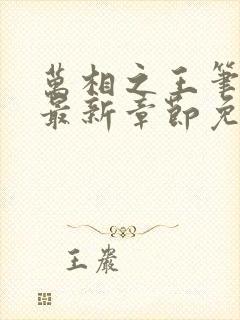 萬相之王筆
最新章節免
王嚴